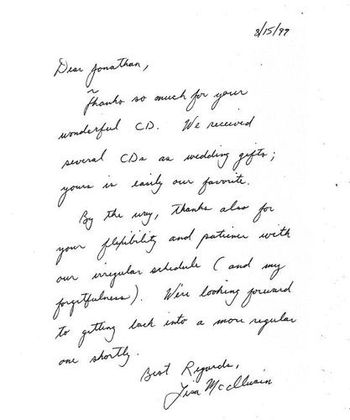 8/15/97
Dear Jonathan,
Thanks so much for your
wonderful CD. We received
several CDs as wedding gifts;
yours is easily our favorite.
By the way, thanks also for
your flexibility and patience with
our irregular schedule (and my
forgetfulness). We're looking forward
to getting back into a more regular
one shortly.
Best Regards,
Lisa McElwain